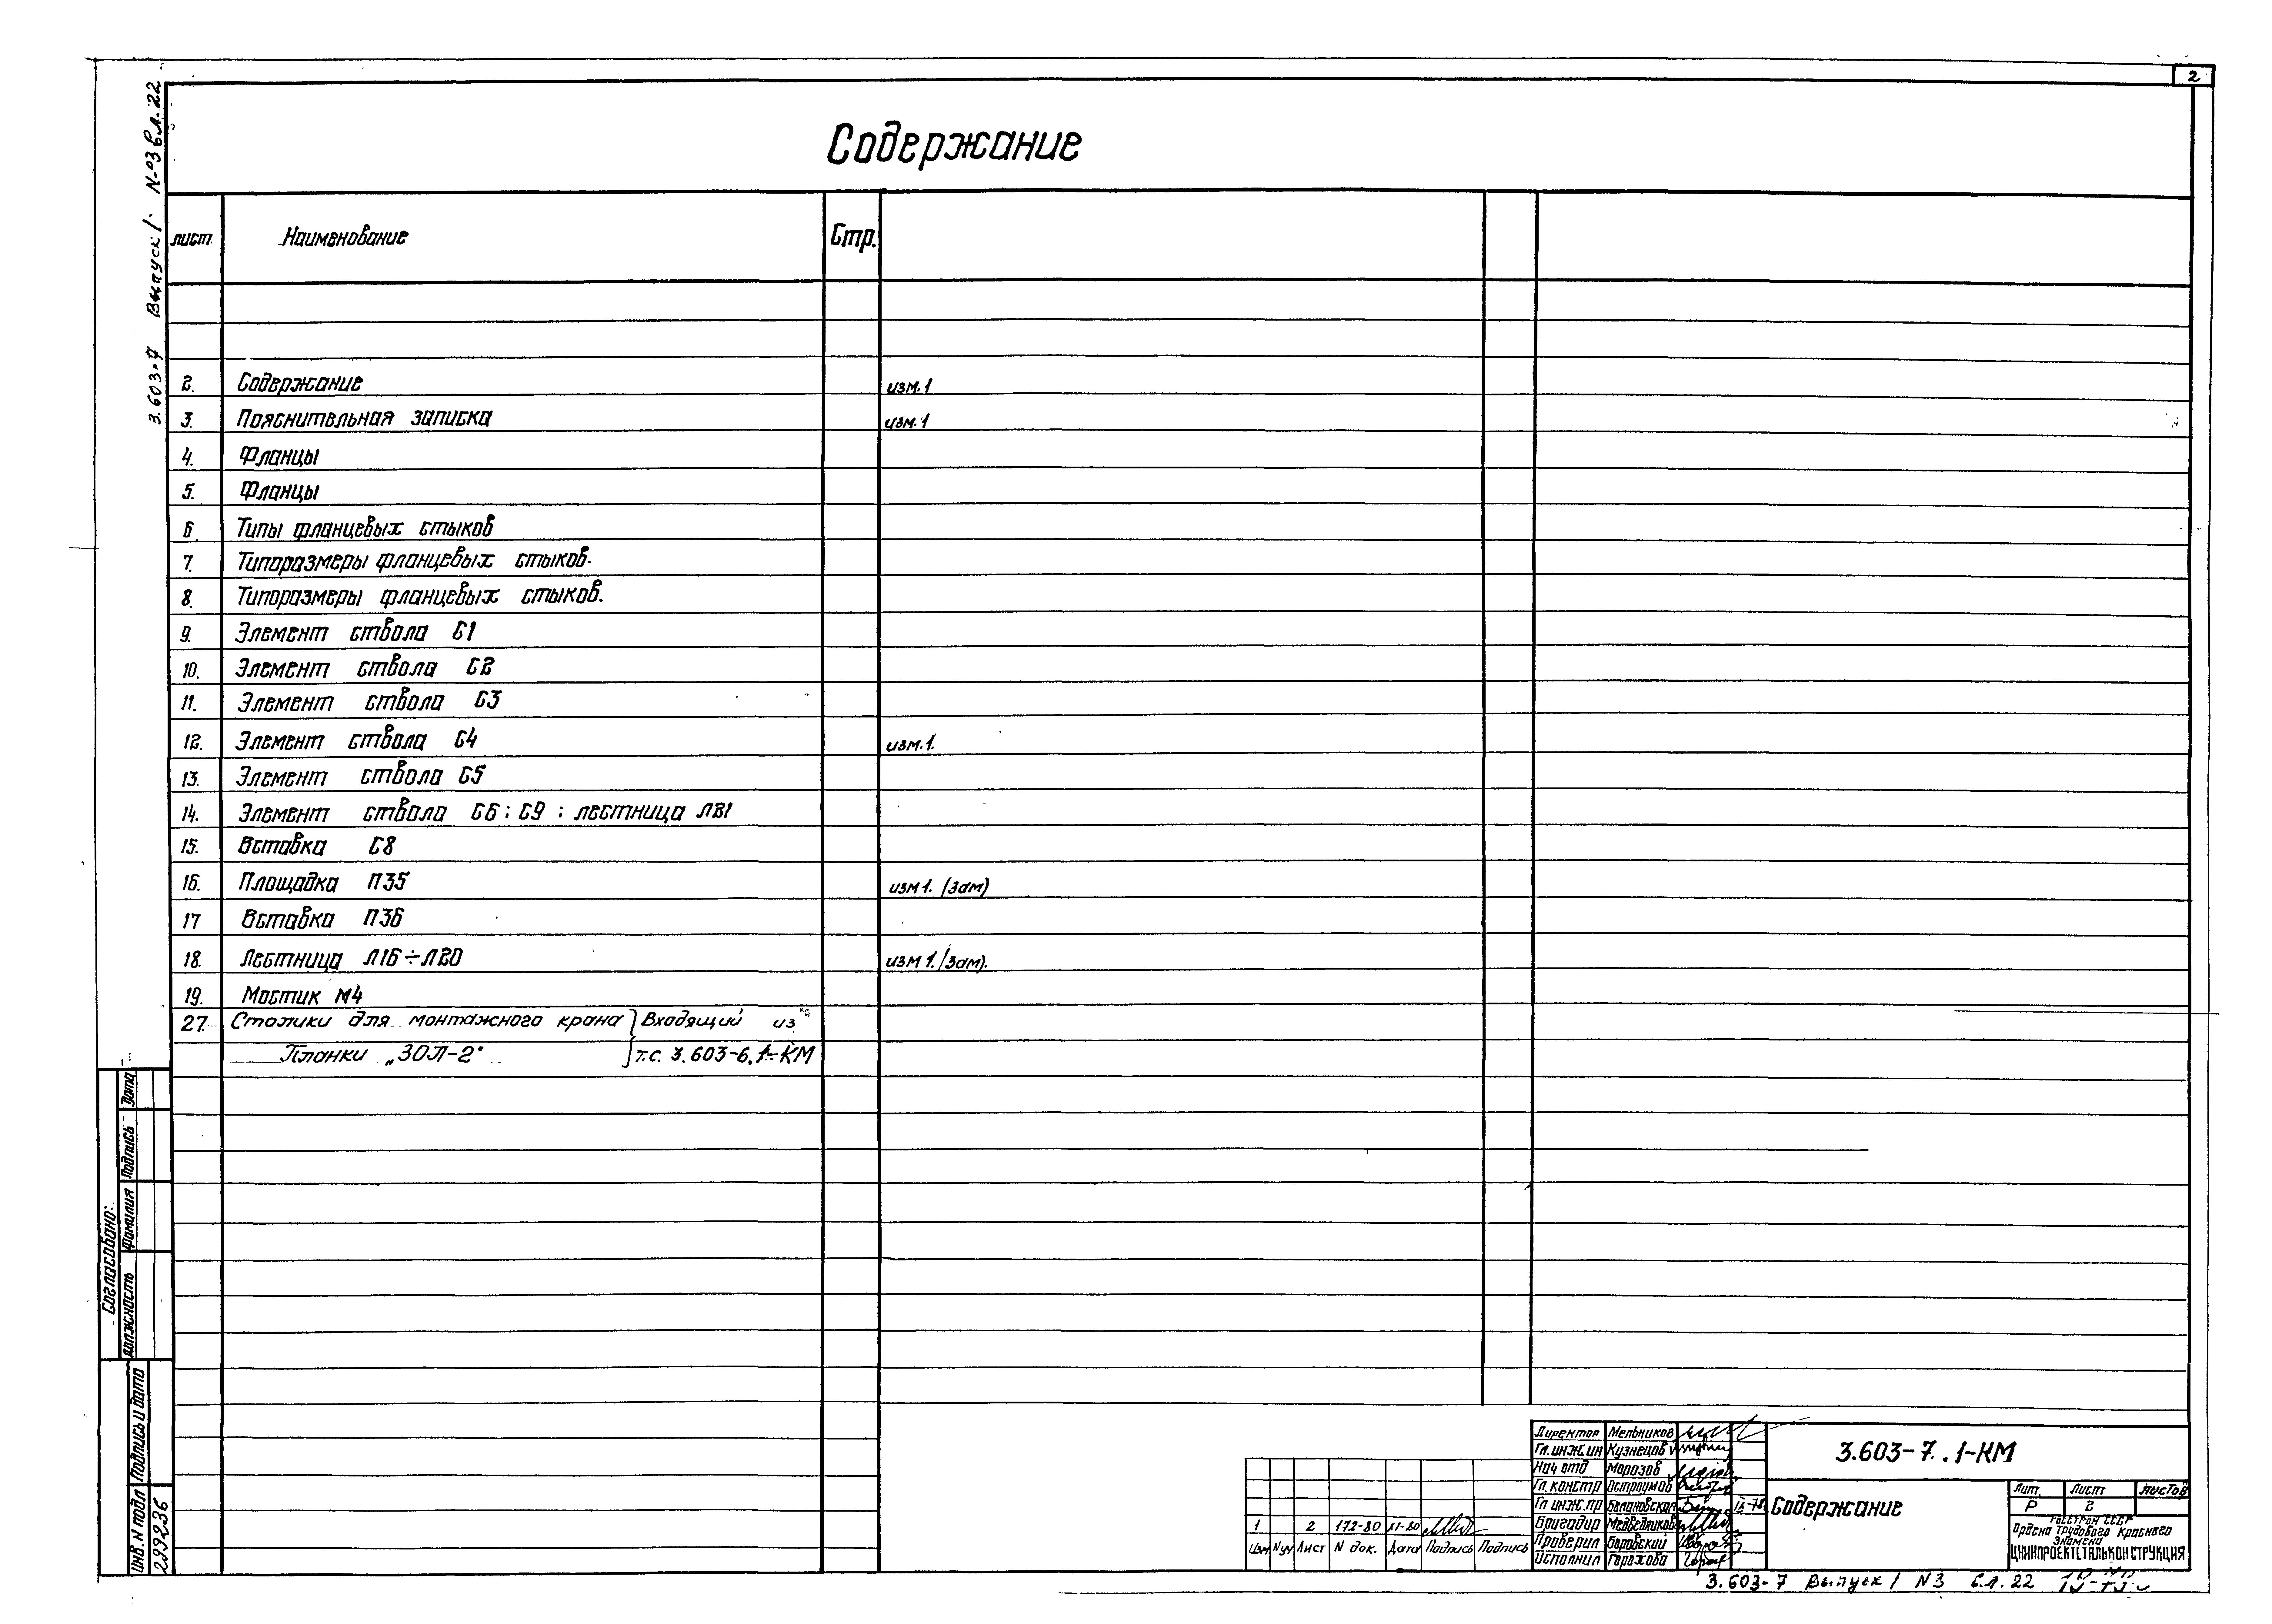 2
3.603-7 Выпуск 1 N-03 вл. 22
Содержание
лист. Наименование Стр.
2. Содержание изм. 1
3. Пояснительная записка изм. 1
4. Фланцы
5. Фланцы
6. Типы фланцевых стыков
7. Типоразмеры фланцевых стыков.
8. Типоразмеры фланцевых стыков.
9. Элемент ствола С1
10. Элемент ствола С2
11. Элемент ствола С3
12. Элемент ствола С4 изм. 1.
13. Элемент ствола С5
14. Элемент ствола С6; С9; лестница ЛВ1
15. Вставка С8
16. Площадка П35 изм 1. (Зам)
17 Вставка П36
18. Лестница Л16÷Л20 изм 1. (Зам).
19. Мостик М4
27. Столики для монтажного крана } Входящий из
Планки „ЗОЛ-2“ т.с. 3.603-6.1-КМ
Согласовано:
Должность Фамилия Подпись Дата
Инв. N подл Подпись и дата
299236
Директор Мельников
Гл. инж. ин Кузнецов
Нач отд Морозов
Гл. констр Остроумов
Гл инж. пр Белановская IX-78
Бригадир Медведников
Проверил Боровский
Исполнил Горохова
1 2 172-80 XI-80
Изм Nуч Лист N док. Дата Подпись Подпись
3.603-7.1-КМ
Содержание
Лит. Лист Листов
Р 2
ГОССТРОЙ СССР
Ордена Трудового Красного
Знамени
ЦНИИПРОЕКТСТАЛЬКОНСТРУКЦИЯ
3.603-7 Выпуск 1 N3 вл. 22